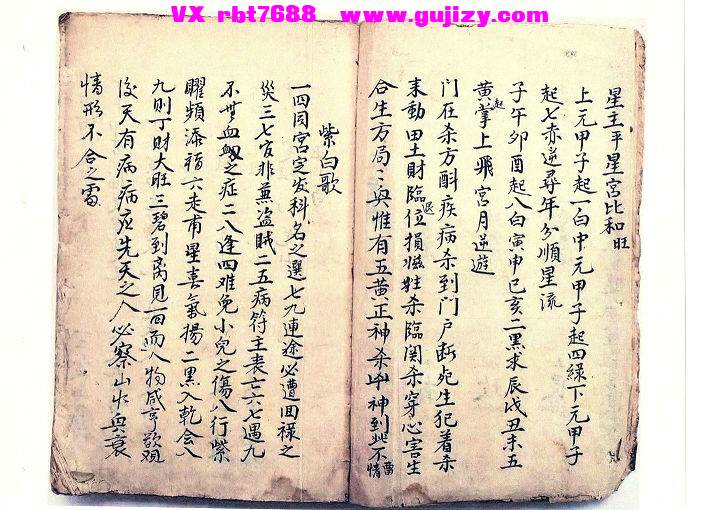 VX rbt7688 www.gujizy.com
星主平星宫比和旺
上元甲子起一白中元甲子起四綠下元甲子
起七赤逆尋年分順星流
子午卯酉起八白寅申巳亥二黑求辰戌丑未五
黄掌上飛宫月逆遊
起
门在杀方酙疾病杀到门户断死生犯着杀
来動田土財臨位損牲杀臨関杀穿心害生
退
合生方局〻與惟有五黄正神杀神到此不
情
紫白歌
一四同宫定发科名之選七九連途必遭回禄之
災三七官非兼盗賊二五病符主丧亡六七遇九
不吐血之症二八逢四难免小兒之傷八行紫
曜頻添福六走甫星喜氣揚二黑入乾会八
九則丁財大旺三碧到离見一四而人物咸亨欲观
後天有病病症先天之人必察山水與衰
情形不合之